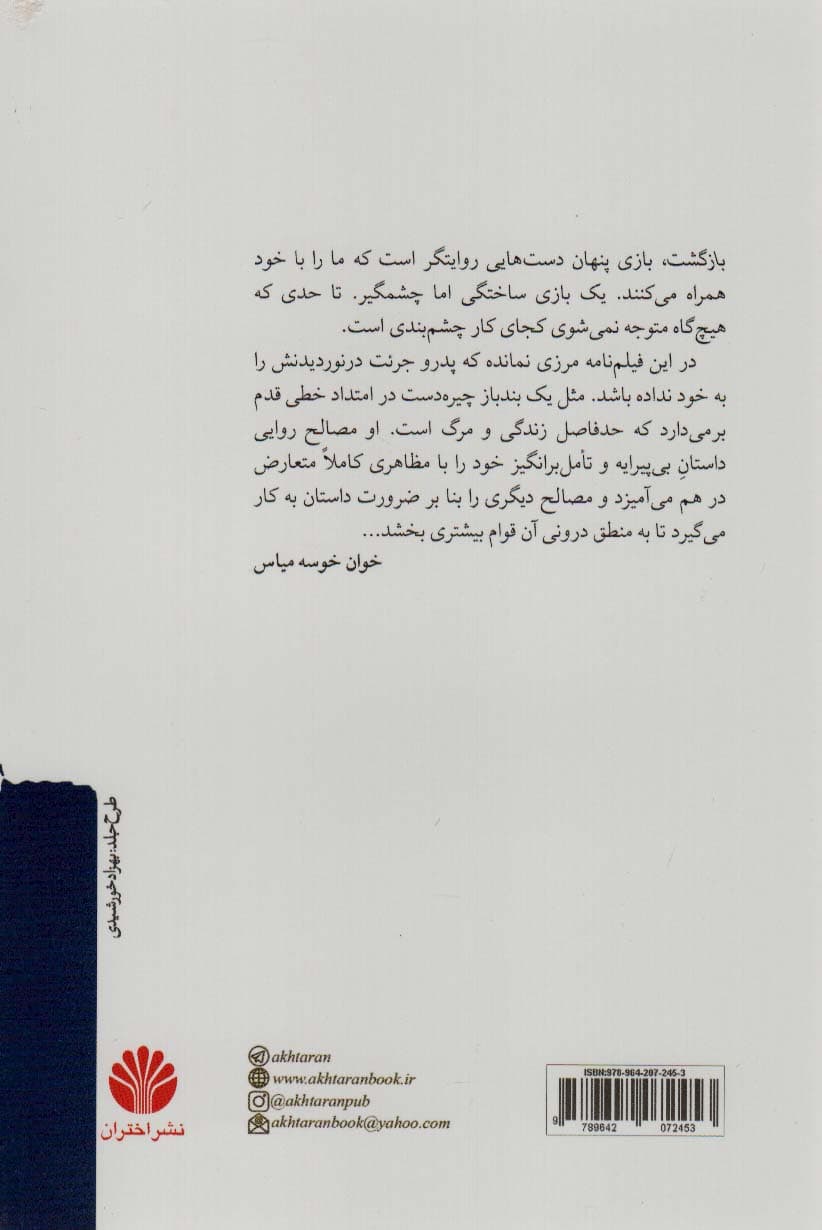 بازگشت، بازی پنهان دست‌هایی روایتگر است که ما را با خود
همراه می‌کنند. یک بازی ساختگی اما چشمگیر. تا حدی که
هیچ‌گاه متوجه نمی‌شوی کجای کار چشم‌بندی است.
در این فیلم‌نامه مرزی نمانده که پدرو جرئت درنوردیدنش را
به خود نداده باشد. مثل یک بندباز چیره‌دست در امتداد خطی قدم
برمی‌دارد که حدفاصل زندگی و مرگ است. او مصالح روایی
داستانِ بی‌پیرایه و تأمل‌برانگیز خود را با مظاهری کاملاً متعارض
در هم می‌آمیزد و مصالح دیگری را بنا بر ضرورت داستان به کار
می‌گیرد تا به منطق درونی آن قوام بیشتری بخشد...
خوان خوسه میاس
طرح جلد: بهزاد خورشیدی
نشر اختران
akhtaran
www.akhtaranbook.ir
@akhtaranpub
akhtaranbook@yahoo.com
ISBN:978-964-207-245-3
9 789642 072453